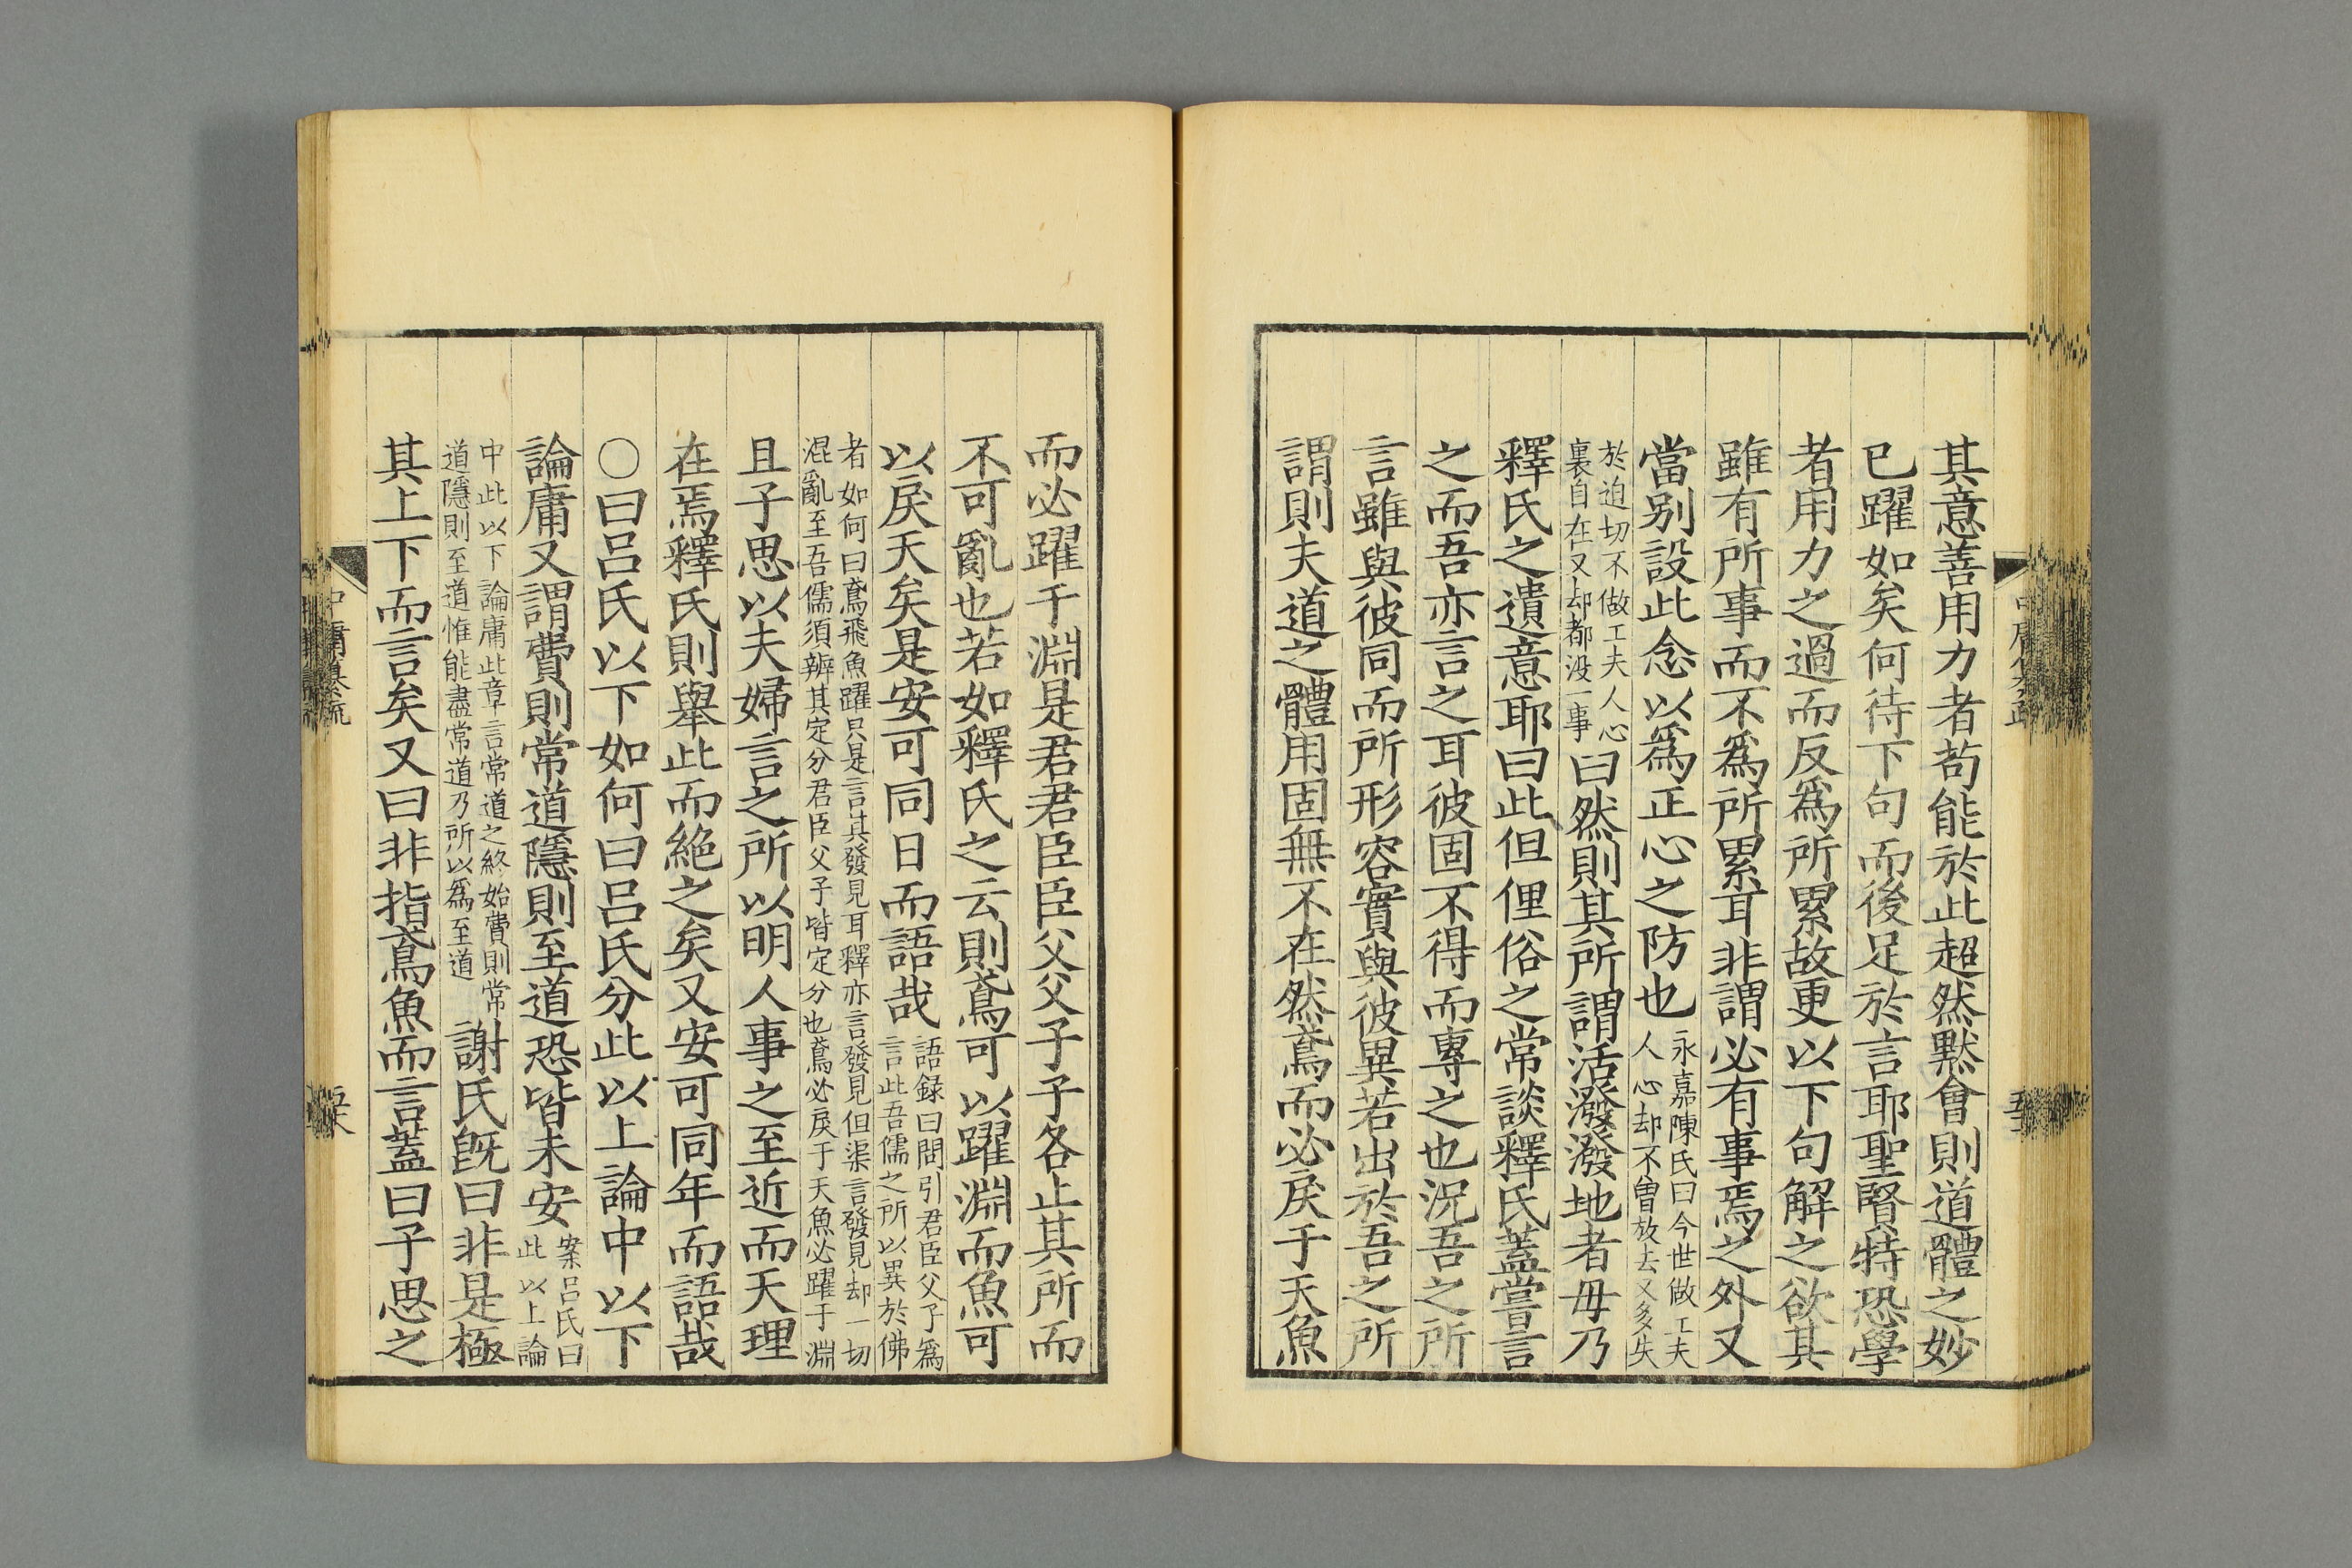 其意善用力者苟能於此超然默會則道體之妙
已躍如矣何待下句而後足於言耶聖賢特恐學
者用力之過而反爲所累故更以下句解之欲其
雖有所事而不爲所累耳非謂必有事焉之外又
當别設此念以爲正心之防也永嘉陳氏曰今世做工夫
人心却不曽放去又多失
於迫切不做工夫人心
裏自在又却都没一事曰然則其所謂活潑潑地者毋乃
釋氏之遺意耶曰此但俚俗之常談釋氏蓋嘗言
之而吾亦言之耳彼固不得而專之也况吾之所
言雖與彼同而所形容實與彼異若出於吾之所
謂則夫道之體用固無不在然鳶而必戾于天魚
而必躍于淵是君君臣臣父父子子各止其所而
不可亂也若如釋氏之云則鳶可以躍淵而魚可
以戾天矣是安可同日而語哉語録曰問引君臣父子爲
言此吾儒之所以異於佛
者如何曰鳶飛魚躍只是言其發見耳釋亦言發見但渠言發見却一切
混亂至吾儒須辨其定分君臣父子皆定分也鳶必戾于天魚必躍于淵
且子思以夫婦言之所以明人事之至近而天理
在焉釋氏則舉此而絶之矣又安可同年而語哉
〇曰呂氏以下如何曰呂氏分此以上論中以下
論庸又謂費則常道隱則至道恐皆未安案呂氏曰
此以上論
中此以下論庸此章言常道之終始費則常
道隱則至道惟能盡常道乃所以爲至道謝氏旣曰非是極
其上下而言矣又曰非指鳶魚而言蓋曰子思之